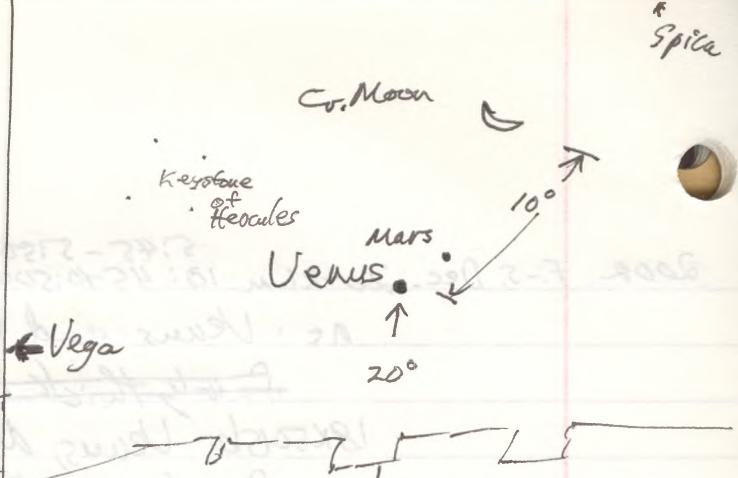 Spica
Cr. Moon
Keystone
of
Heocules
10°
Mars
Venus
Vega
20°